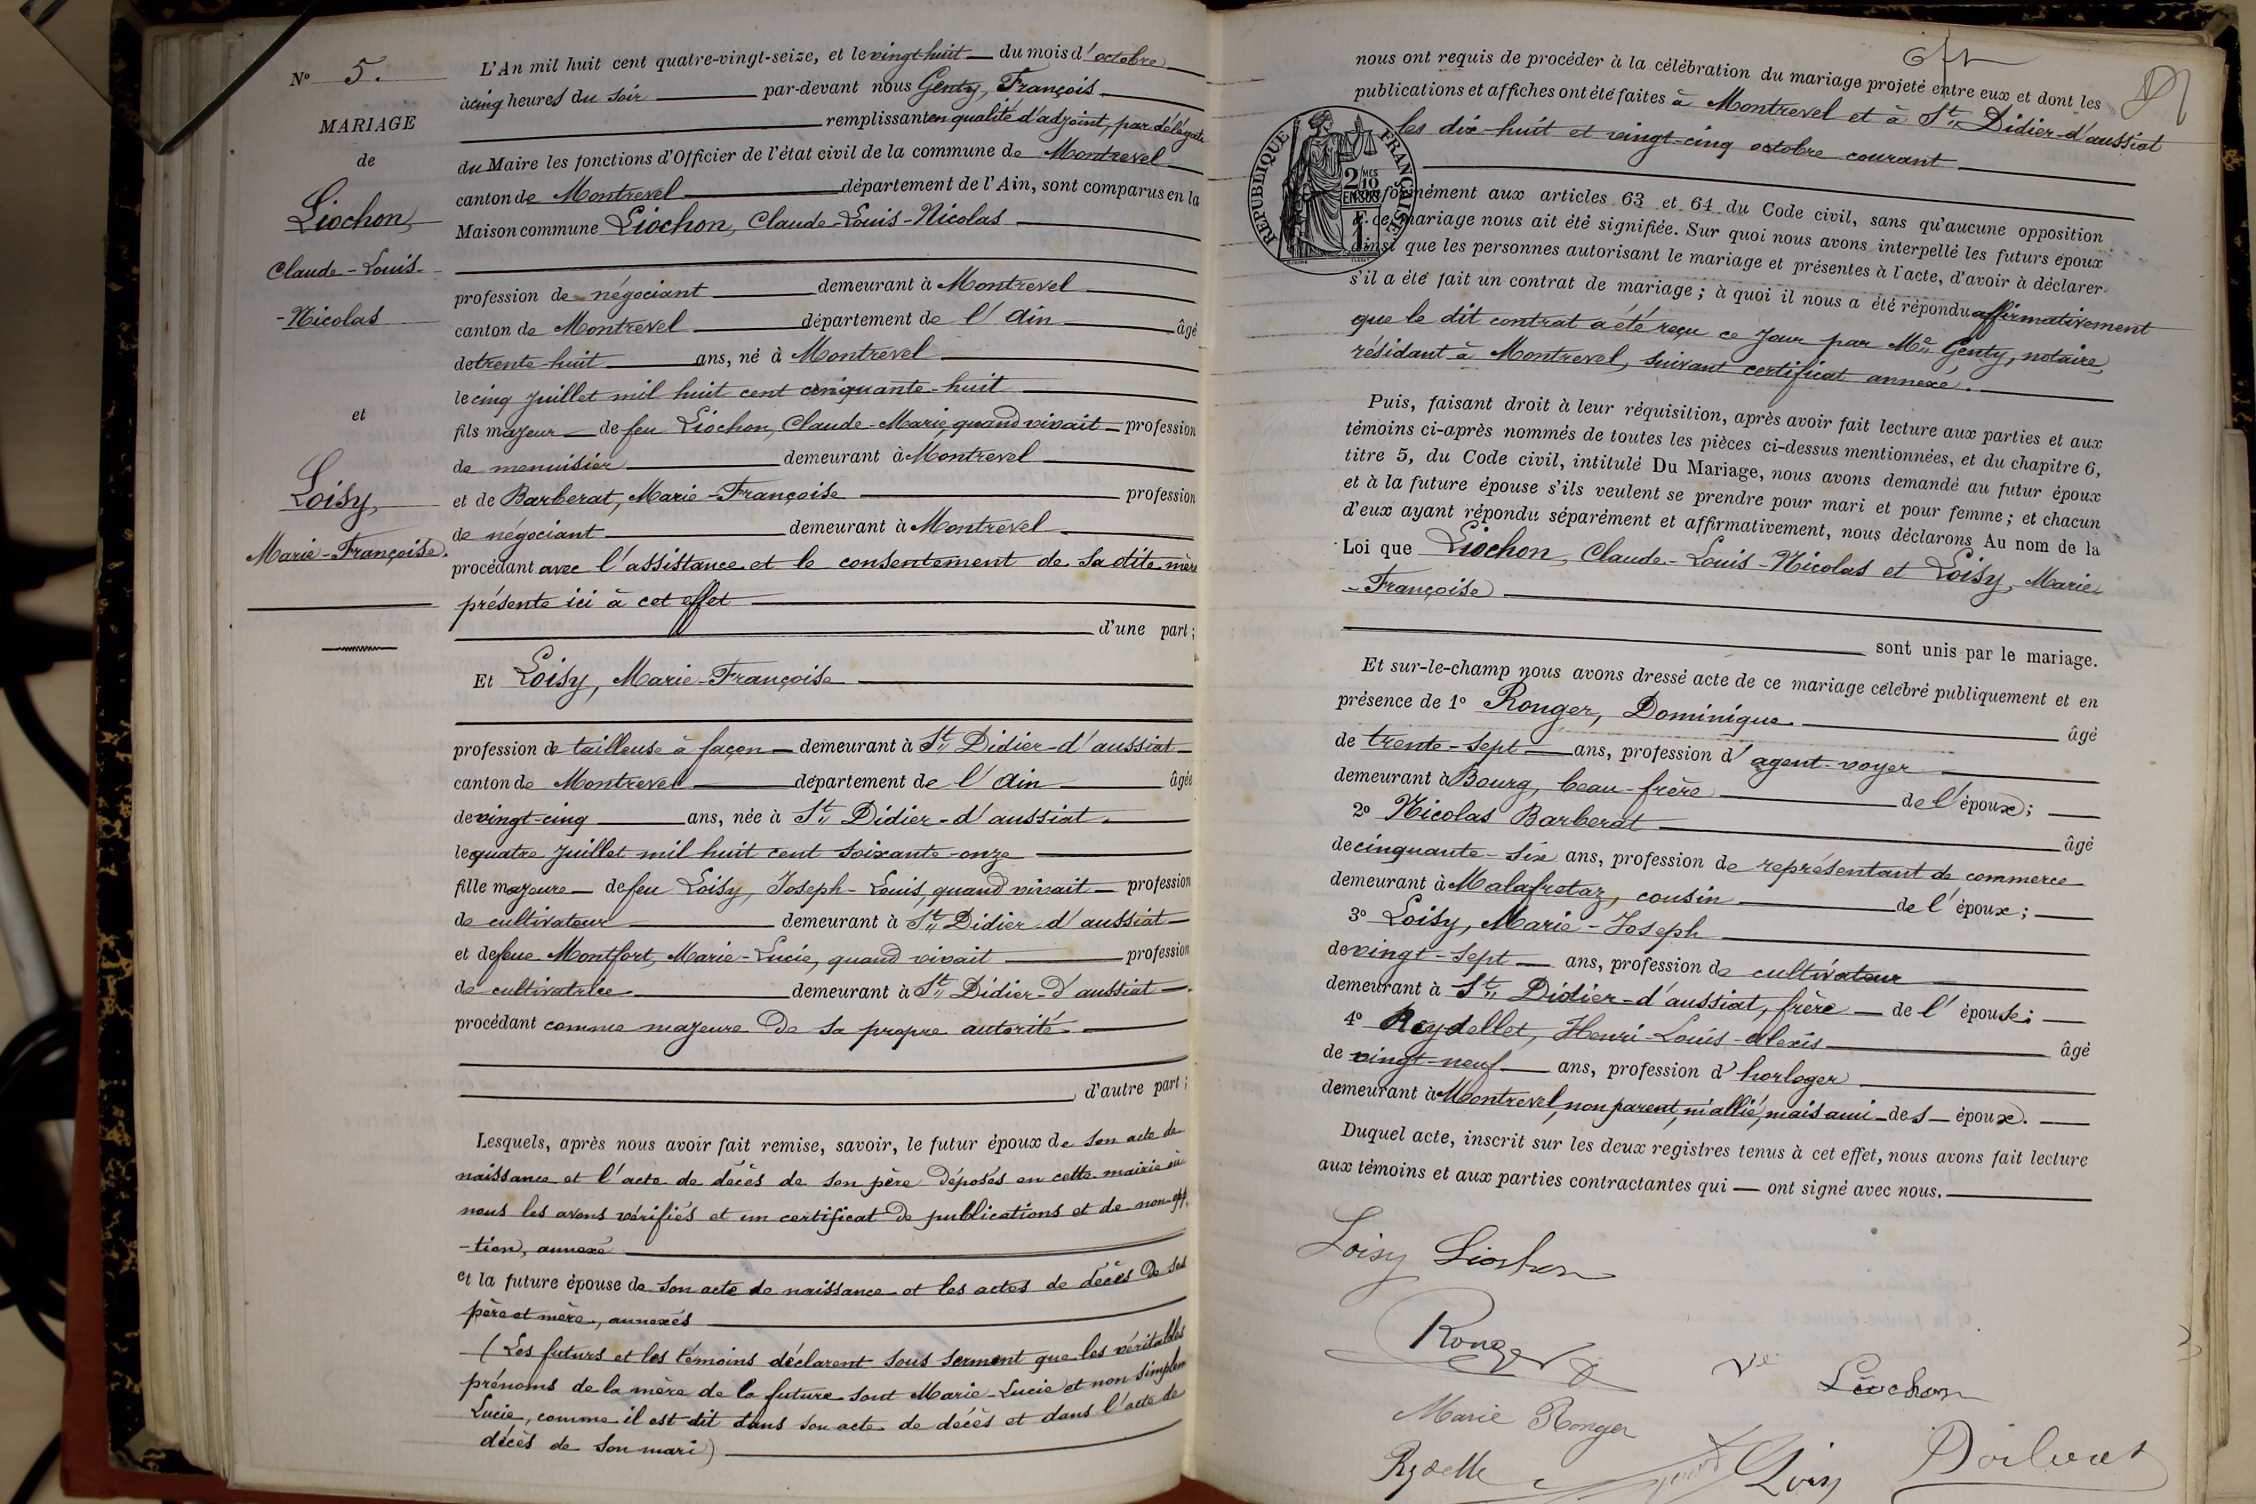 N° 5.
MARIAGE
de
Liochon,
Claude-Louis-
-Nicolas
et
Loisy,
Marie-Françoise.
L'An mil huit cent quatre-vingt-seize, et le vingt-huit du mois d'octobre
à cinq heures du soir par-devant nous Genty, François
remplissant en qualité d'adjoint, par délégato
du Maire les fonctions d'Officier de l'état civil de la commune de Montrevel
canton de Montrevel département de l'Ain, sont comparus en la
Maison commune Liochon, Claude-Louis-Nicolas
profession de négociant demeurant à Montrevel
canton de Montrevel département de l'Ain âgé
de trente-huit ans, né à Montrevel
le cinq juillet mil huit cent cinquante-huit
fils majeur de feu Liochon, Claude-Marie, quand vivait profession
de menuisier demeurant à Montrevel
et de Barberat, Marie-Françoise profession
de négociant demeurant à Montrevel
procédant avec l'assistance et le consentement de sa dite mère
présente ici à cet effet
d'une part;
Et Loisy, Marie-Françoise
profession de tailleuse à façon demeurant à St Didier-d'aussiat
canton de Montrevel département de l'Ain âgée
de vingt-cinq ans, née à St Didier-d'aussiat
le quatre juillet mil huit cent soixante-onze
fille majeure de feu Loisy, Joseph-Louis, quand vivait profession
de cultivateur demeurant à St Didier-d'aussiat
et de feue Montfort, Marie-Lucie, quand vivait profession
de cultivatrice demeurant à St Didier-d'aussiat
procédant comme majeure de sa propre autorité
d'autre part;
Lesquels, après nous avoir fait remise, savoir, le futur époux de son acte de
naissance et l'acte de décès de son père déposés en cette mairie où
nous les avons vérifiés et un certificat de publications et de non-opp.
-tion, annexé
et la future épouse de son acte de naissance et les actes de décès de ses
père et mère, annexés
(Les futurs et les témoins déclarent sous serment que les véritables
prénoms de la mère de la future sont Marie-Lucie et non simplem
Lucie, comme il est dit dans son acte de décès et dans l'acte de
décès de son mari)
nous ont requis de procéder à la célébration du mariage projeté entre eux et dont les
publications et affiches ont été faites à Montrevel et à St Didier-d'aussiat
les dix-huit et vingt-cinq octobre courant
RÉPUBLIQUE FRANÇAISE
2/10
EN SUS
conformément aux articles 63 et 64 du Code civil, sans qu'aucune opposition
à ce mariage nous ait été signifiée. Sur quoi nous avons interpellé les futurs époux
ainsi que les personnes autorisant le mariage et présentes à l'acte, d'avoir à déclarer
s'il a été fait un contrat de mariage; à quoi il nous a été répondu affirmativement
que le dit contrat a été reçu ce jour par Me Genty, notaire
résidant à Montrevel, suivant certificat annexé.
Puis, faisant droit à leur réquisition, après avoir fait lecture aux parties et aux
témoins ci-après nommés de toutes les pièces ci-dessus mentionnées, et du chapitre 6,
titre 5, du Code civil, intitulé Du Mariage, nous avons demandé au futur époux
et à la future épouse s'ils veulent se prendre pour mari et pour femme; et chacun
d'eux ayant répondu séparément et affirmativement, nous déclarons Au nom de la
Loi que Liochon, Claude-Louis-Nicolas et Loisy, Marie
-Françoise
sont unis par le mariage.
Et sur-le-champ nous avons dressé acte de ce mariage célébré publiquement et en
présence de 1° Ronger, Dominique âgé
de trente-sept ans, profession d'agent-voyer
demeurant à Bourg, beau-frère de l'époux;
2° Nicolas Barberat âgé
de cinquante-six ans, profession de représentant de commerce
demeurant à Malafretaz, cousin de l'époux;
3° Loisy, Marie-Joseph
de vingt-sept ans, profession de cultivateur
demeurant à St Didier-d'aussiat, frère de l'épouse;
4° Reydellet, Henri-Louis-Alexis âgé
de vingt-neuf ans, profession d'horloger
demeurant à Montrevel, non parent, ni allié, mais ami des époux.
Duquel acte, inscrit sur les deux registres tenus à cet effet, nous avons fait lecture
aux témoins et aux parties contractantes qui ont signé avec nous.
Loisy Liochon
Ronger
Ve Liochon
Marie Ronger
Loisy